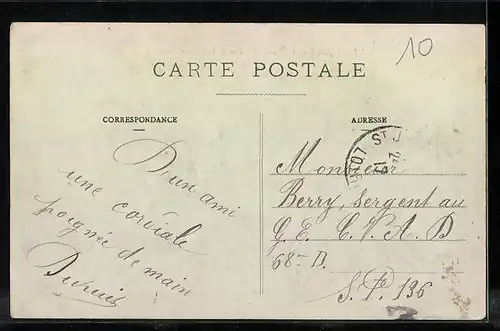 10
CARTE POSTALE
CORRESPONDANCE
D'un ami
une cordiale
poignée de main
ADRESSE
Monsieur
Berry, sergent au
G. E. C. V. A. D
68-D.
S. P. 136